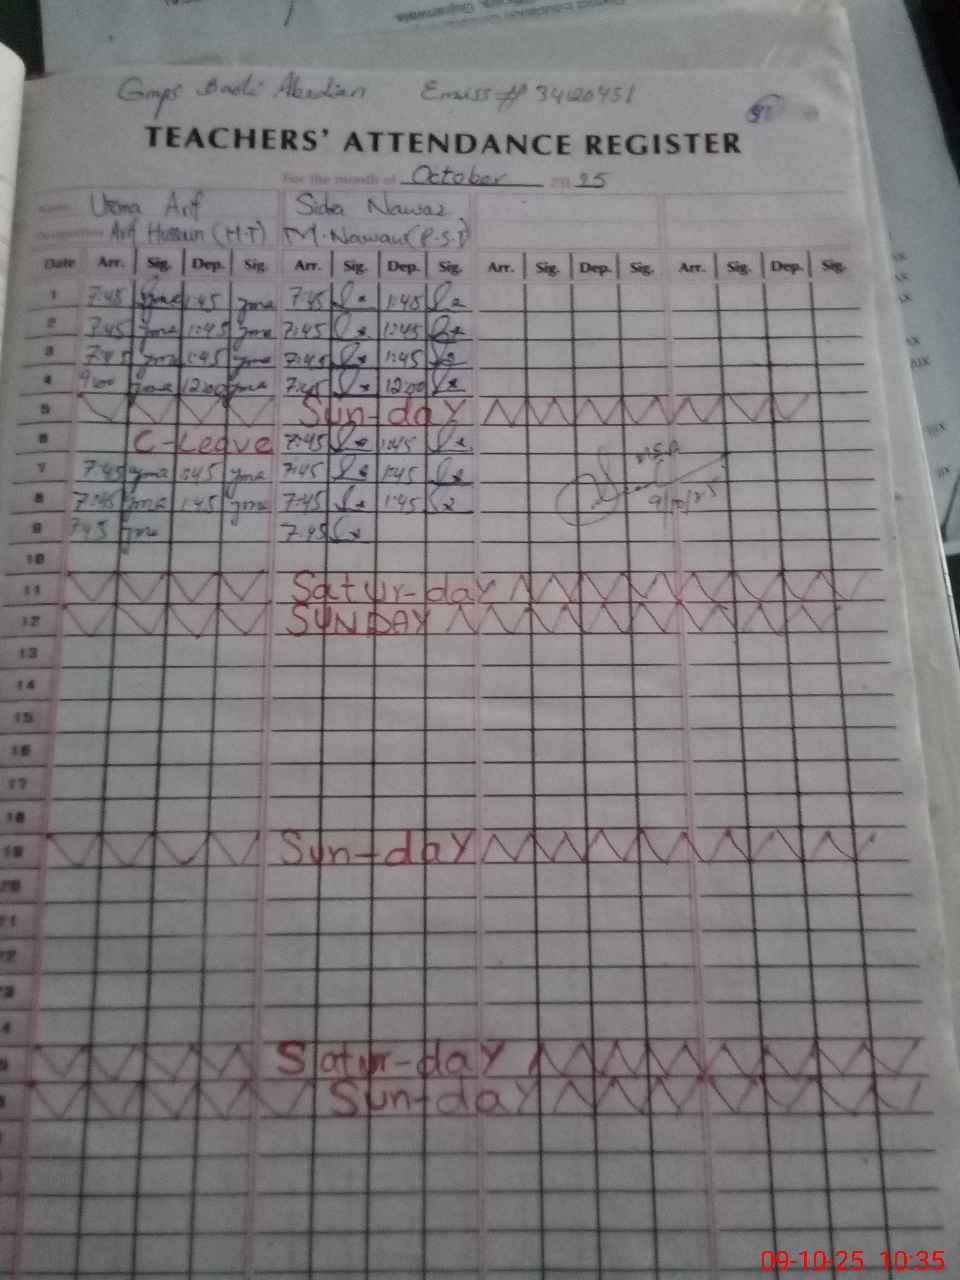 Gmps Badi Abadian Emiss# 34120451
TEACHERS' ATTENDANCE REGISTER
For the month of October 20 25
Name Uzma Arif Sidra Nawaz
Arif Hussain (H.T) M. Nawaz (P.S.T)
Date Arr. Sig. Dep. Sig. Arr. Sig. Dep. Sig. Arr. Sig. Dep. Sig. Arr. Sig. Dep. Sig.
1 7:45 1:45 7:45 1:45
2 7:45 1:45 7:45 1:45
3 7:45 1:45 7:45 1:45
4 9:00 12:00 7:45 12:00
5 Sun-day
6 C-Leave 7:45 1:45
7 7:45 1:45 7:45 1:45
8 7:45 1:45 7:45 1:45
9/10/25
9 7:45 7:45
10
11 Satur-day
12 SUNDAY
13
14
15
16
17
18
19 Sun-day
20
21
22
23
4
5 Satur-day
Sun-day
09-10-25 10:35